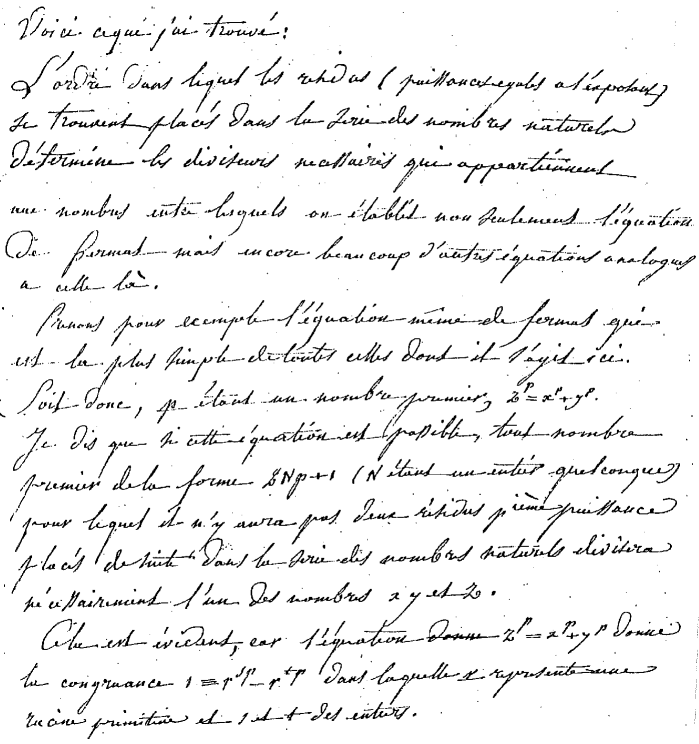 Voici ce que j'ai trouvé:
L'ordre dans lequel les residus (puissances egales a l'exposant)
se trouvent placés dans la serie des nombres naturels
détermine les diviseurs necessaires qui appartiennent
aux nombres entre lesquels on établit non seulement l'équation
de fermat mais encore beaucoup d'autres équations analogues
a celle là.
Prenons pour exemple l'équation même de fermat qui
est la plus simple de toutes celles dont il s'agit ici.
Soit donc, p étant un nombre premier, z^p = x^p + y^p.
Je dis que si cette équation est possible, tout nombre
premier de la forme 2Np+1 (N étant un entier quelconque)
pour lequel il n'y aura pas deux résidus p^ième puissance
placés de suite dans la serie des nombres naturels divisera
nécessairement l'un des nombres x y et z.
Cela est évident, car l'équation z^p = x^p + y^p donne
la congruance 1 ≡ r^sp - r^tp dans laquelle r represente une
racine primitive et s et t des entiers.